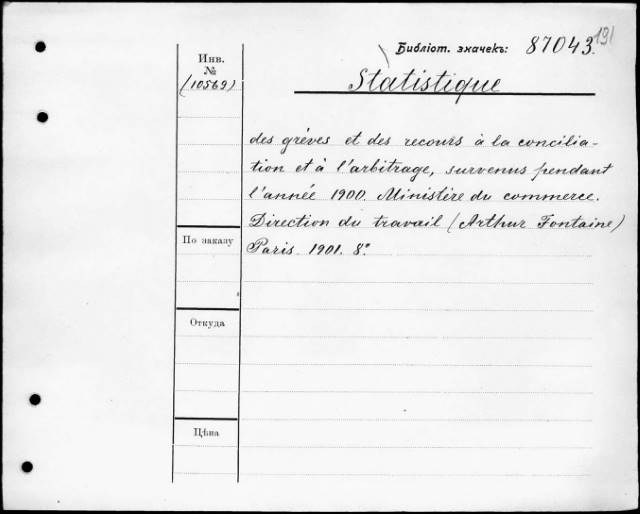 Библіот. значекъ: 87043.
191
Инв.
№
(10569)
Statistique
des grèves et des recours à la concilia-
tion et à l'arbitrage, survenus pendant
l'année 1900. Ministère du commerce.
Direction du travail (Arthur Fontaine)
Paris 1901. 8°
По заказу
Откуда
Цѣна